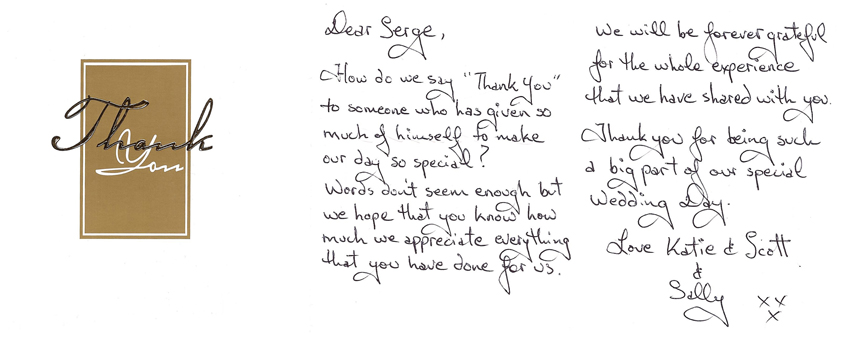 Thank
You
Dear Serge,
How do we say "Thank You"
to someone who has given so
much of himself to make
our day so special?
Words don't seem enough but
we hope that you know how
much we appreciate everything
that you have done for us.
We will be forever grateful
for the whole experience
that we have shared with you.
Thank you for being such
a big part of our special
Wedding Day.
Love Katie & Scott
&
Sally
x x
x